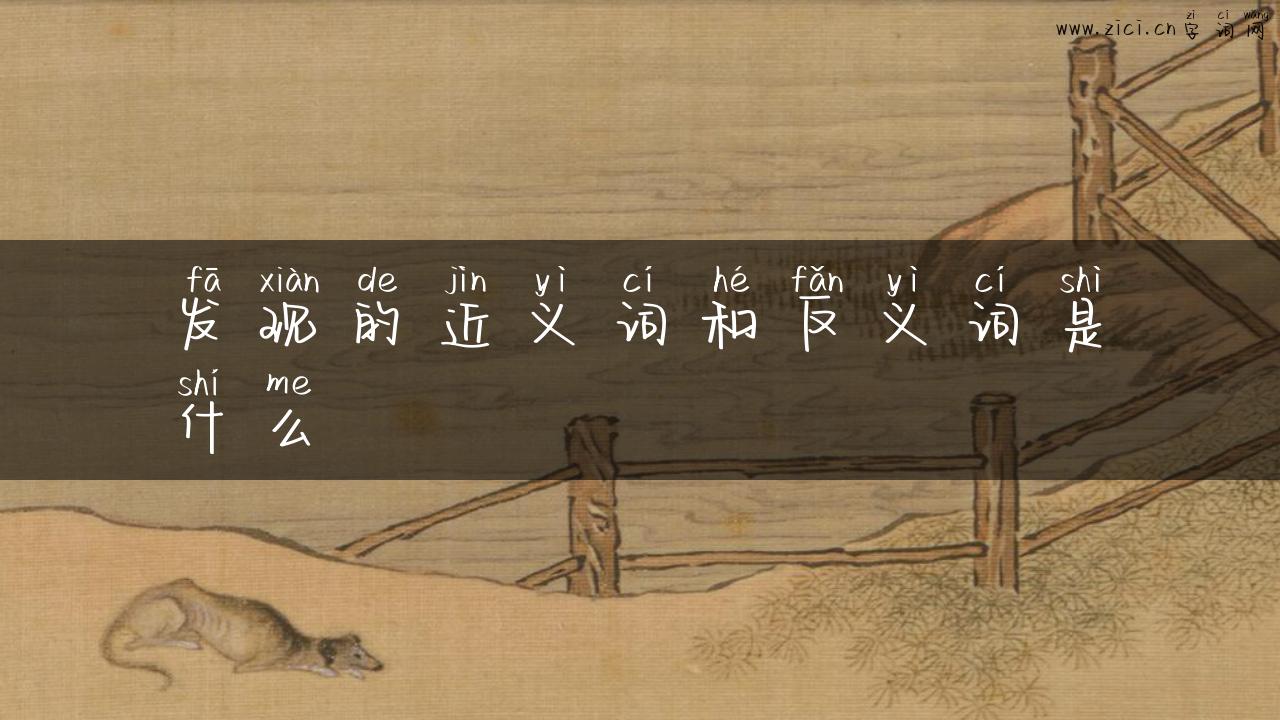 zì cí wǎng
www.zici.cn 字词网
fā xiàn de jìn yì cí hé fǎn yì cí shì
发现的近义词和反义词是
shí me
什么